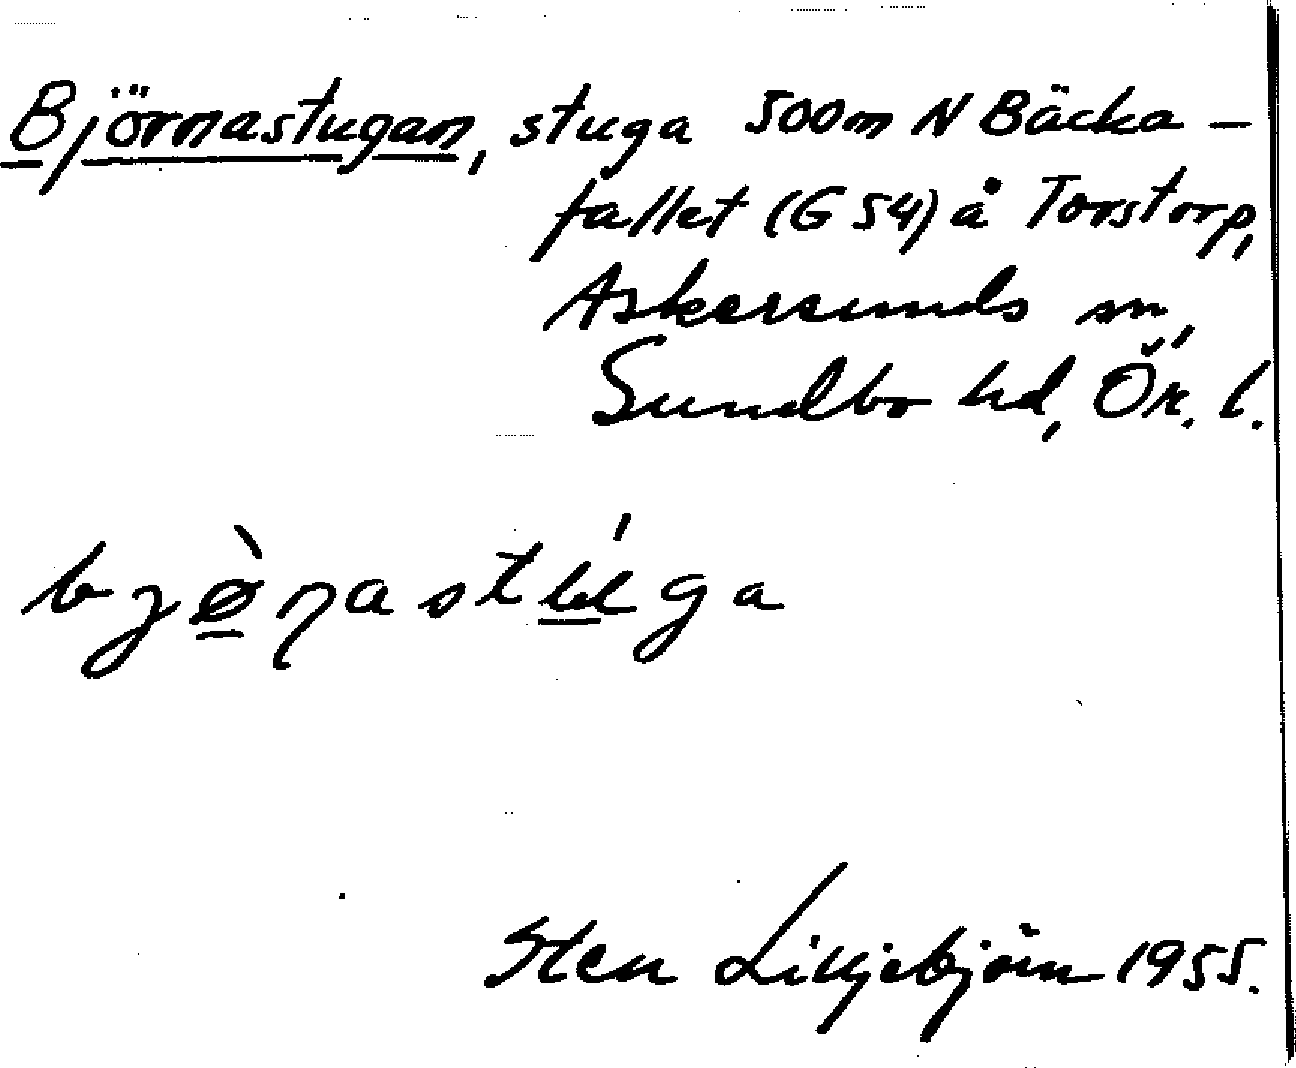 Björnastugan, stuga 500m N Bäcka-
fallet (G 54) å Torstorp,
Askersunds sn,
Sundbo hd, Ör. l.
bjø̀ɳastúga
Sten Lilljebjörn 1955.